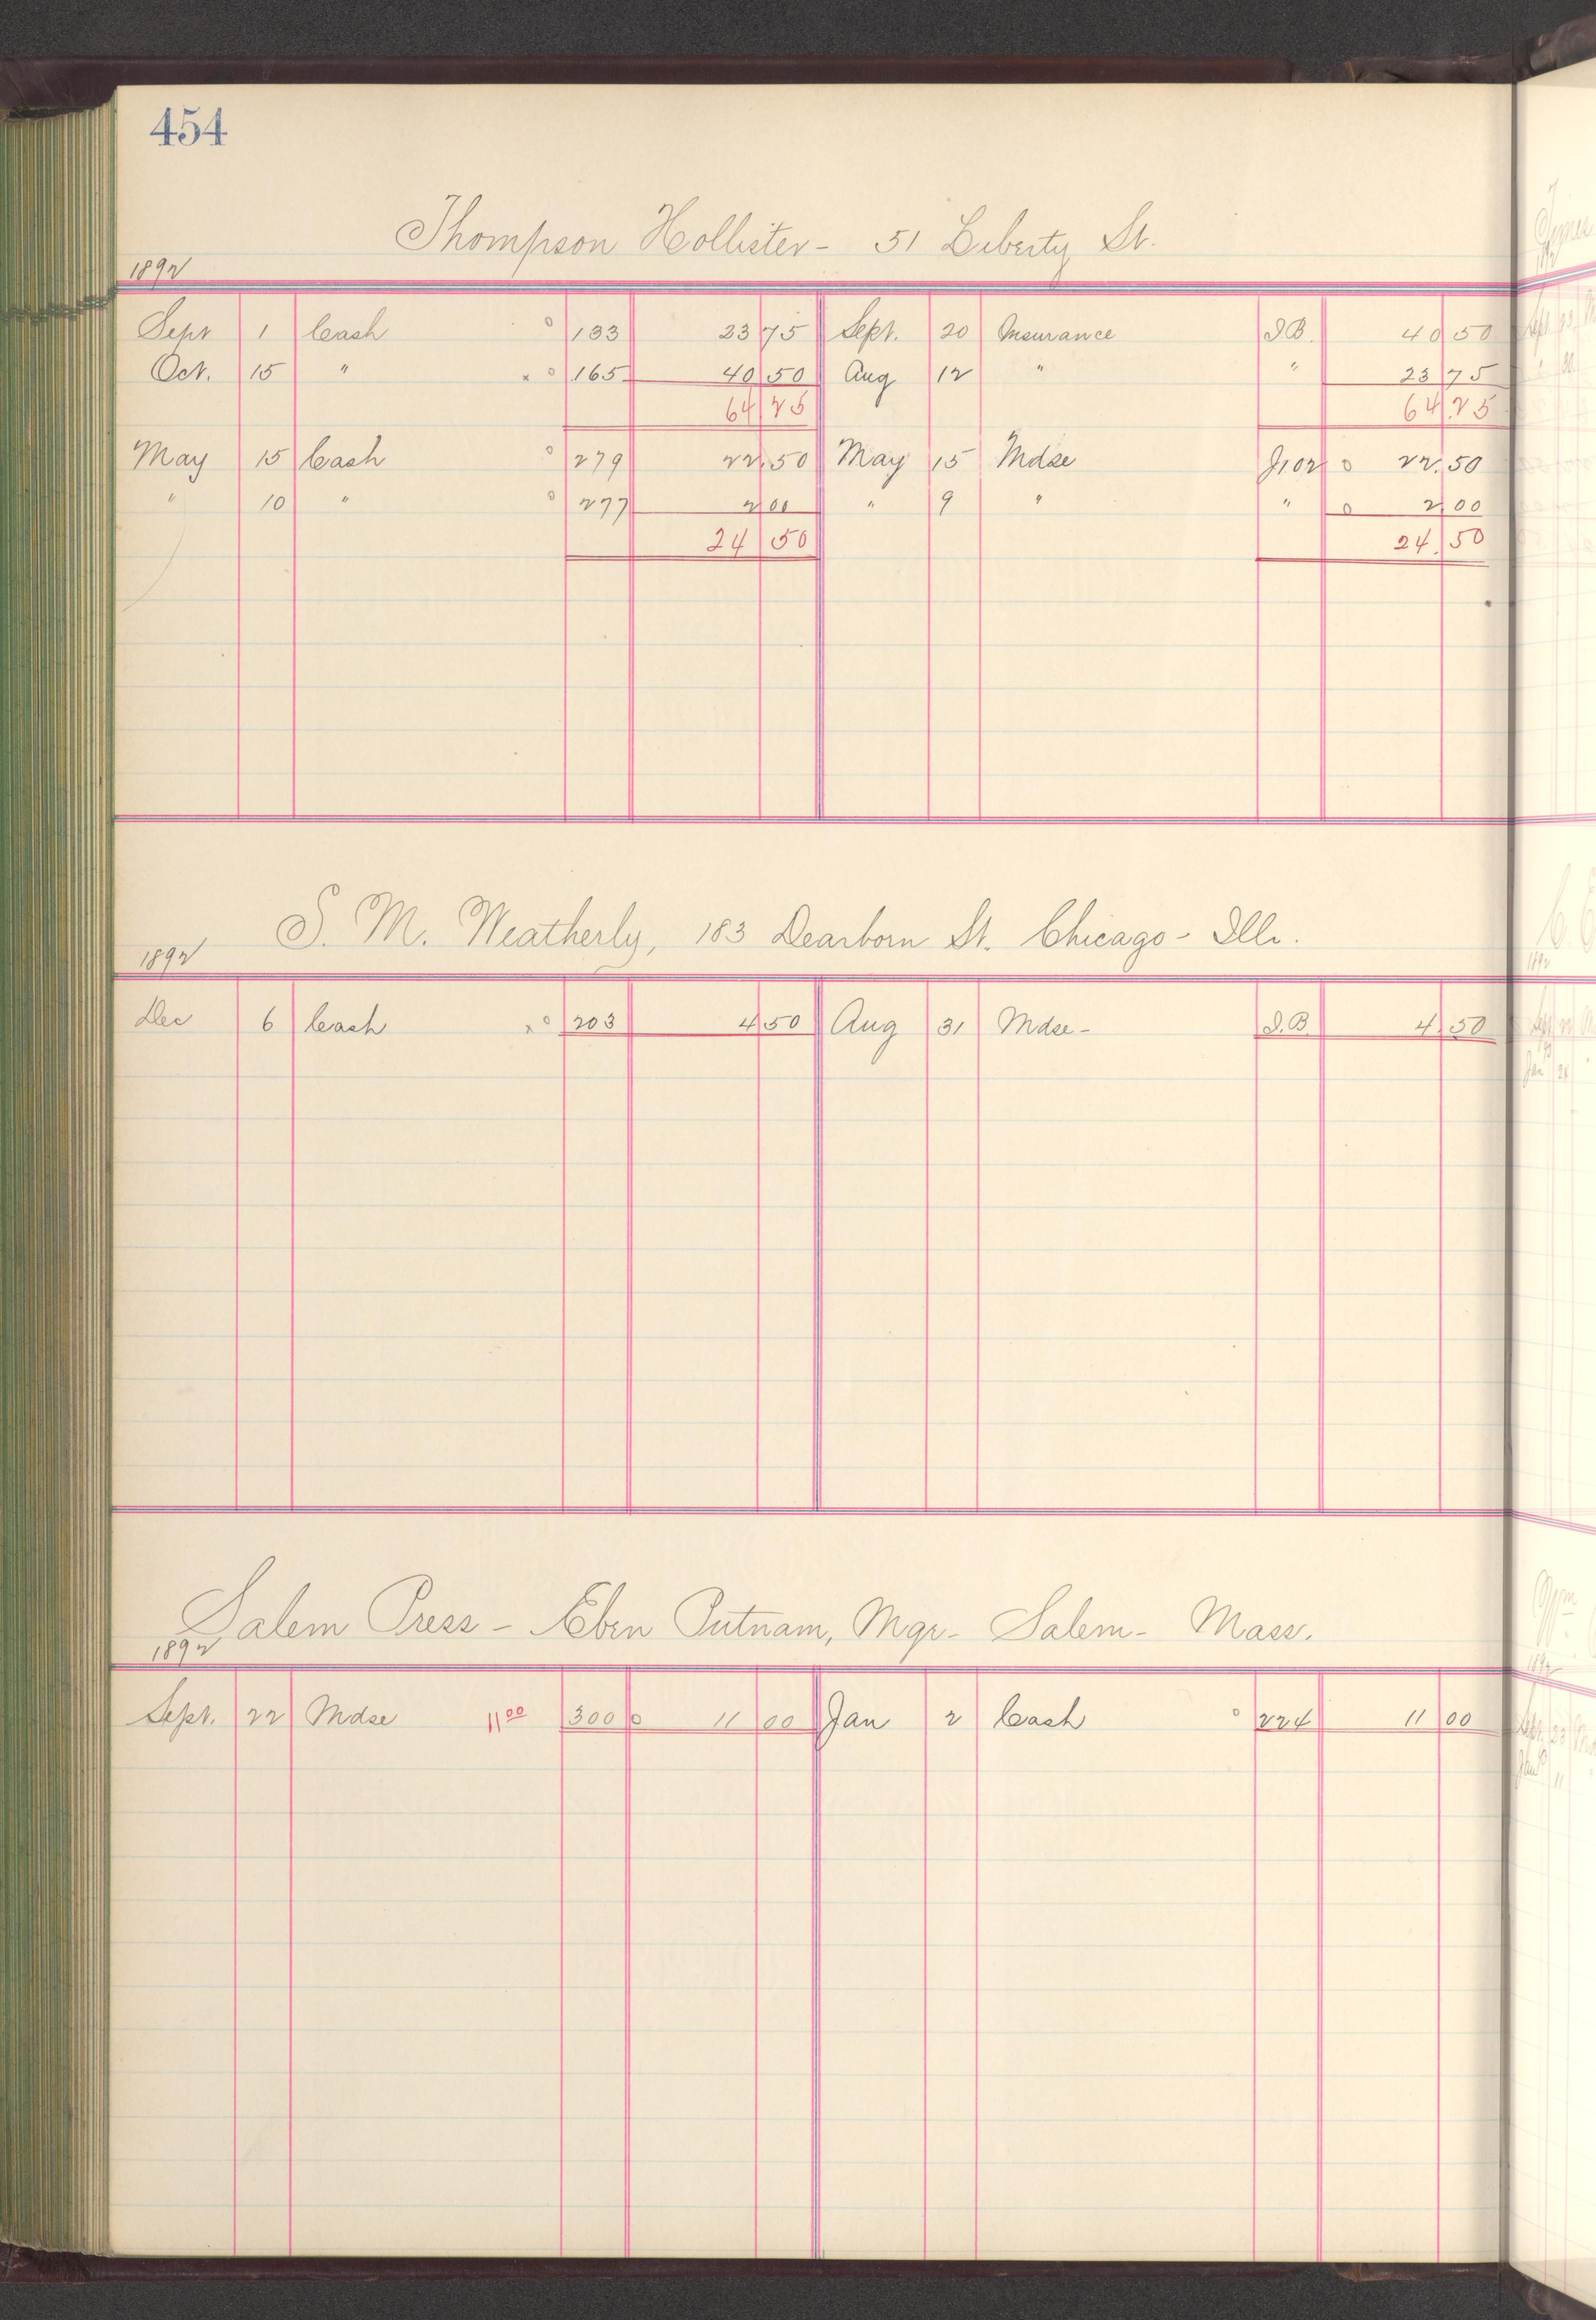 454
Thompson Hollister - 51 Liberty St.
1892
Sept 1 Cash 133 23 75 Sept. 20 Insurance I.B. 40 50
Oct. 15 " × 165 40 50 Aug 12 " " 23 75
64 25 64 25
May 15 Cash 279 22.50 May 15 Mdse J102 22.50
" 10 " 277 2 00 " 9 " " 2 00
24 50 24 50
S. M. Weatherly, 183 Dearborn St. Chicago - Ills.
1892
Dec 6 Cash × 203 4 50 Aug 31 Mdse - I.B. 4 50
Salem Press - Eben Putnam, Mgr - Salem - Mass.
1892
Sept. 22 Mdse 11 00 300 11 00 Jan 2 Cash 224 11 00